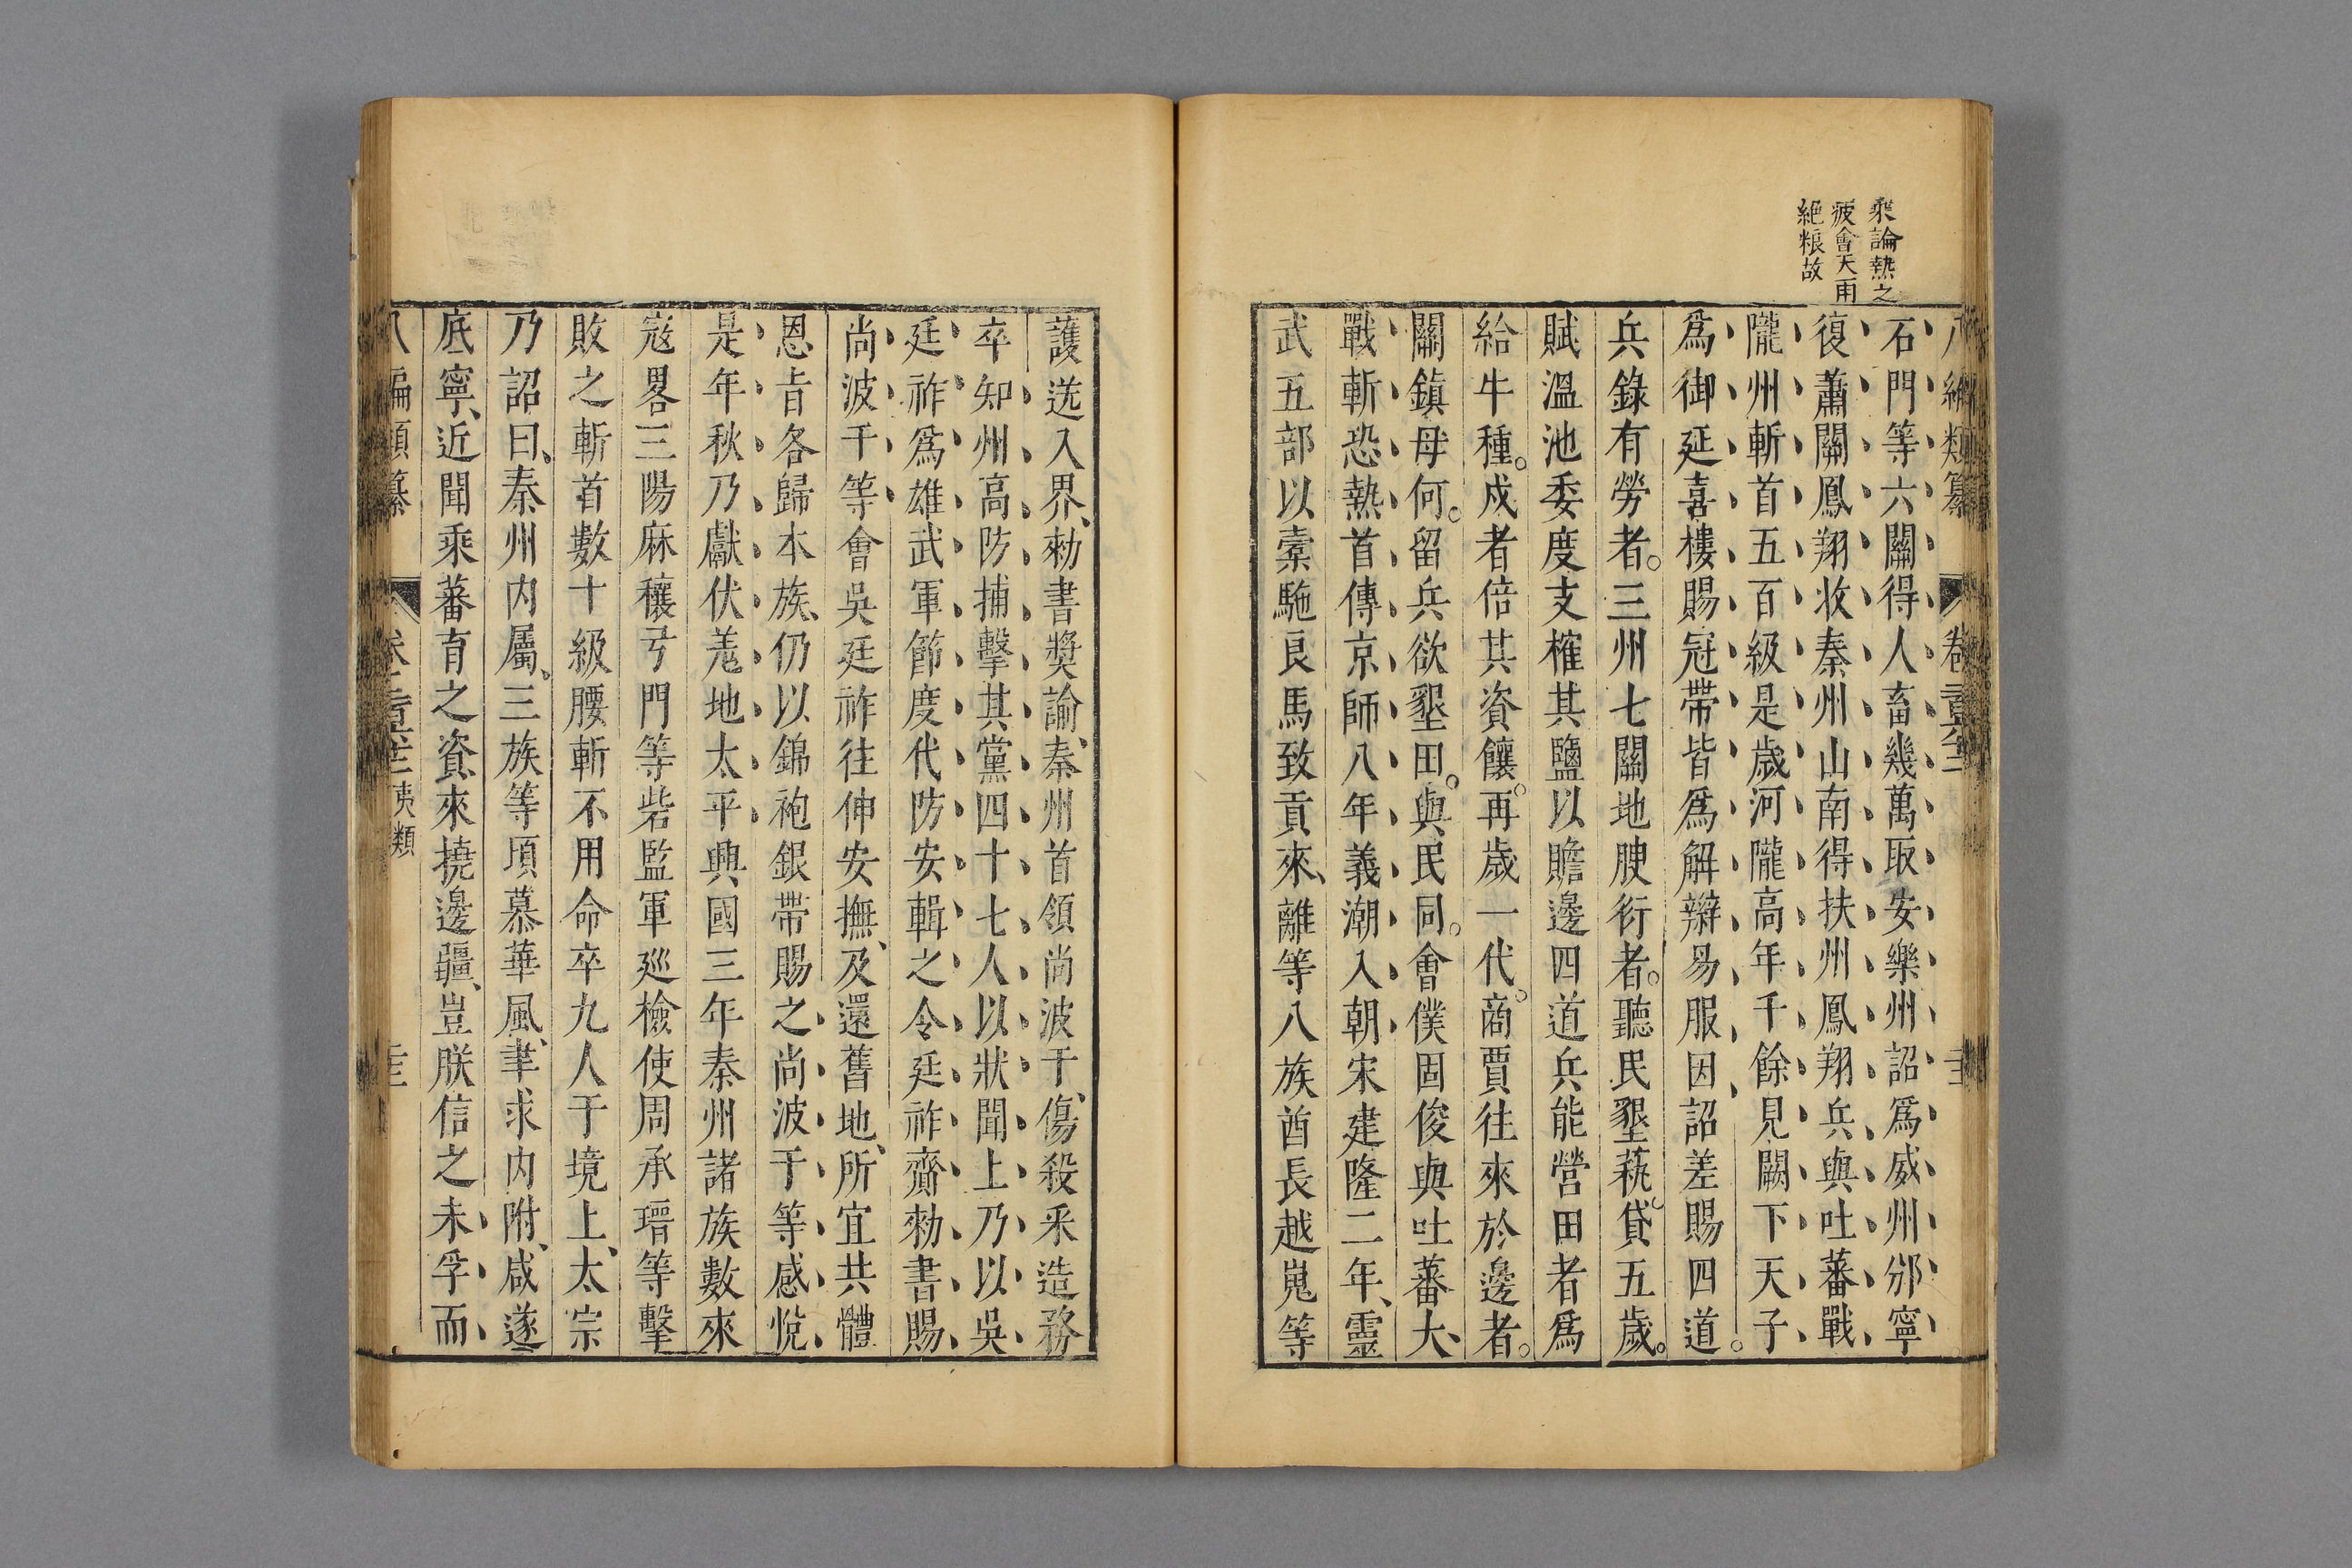 乘論熱之
疲會天雨
絕粮故
石門等六關得人畜幾萬取安樂州詔爲威州邠寧
復蕭關鳳翔收秦州山南得扶州鳳翔兵與吐蕃戰
隴州斬首五百級是歲河隴高年千餘見闕下天子
爲御延喜樓賜冠帶皆爲解辮易服因詔差賜四道。
兵錄有勞者。三州七關地腴衍者。聽民墾蓺。貸五歲。
賦溫池委度支榷其鹽以贍邊四道兵能營田者爲
給牛種。戍者倍其資饟。再歲一代。商賈往來於邊者。
關鎮母何。留兵欲墾田。與民同。會僕固俊與吐蕃大、
戰斬恐熱首傳京師八年義潮入朝宋建隆二年、靈
武五部以橐駞良馬致貢來、離等八族酋長越嵬等
護送入界、勑書獎諭、秦州首領尚波于、傷殺采造務
卒知州高防捕擊其黨四十七人以狀聞上乃以吳
廷祚爲雄武軍節度代防安輯之令廷祚齎勑書賜
尚波于等會吳廷祚往伸安撫、及還舊地、所宜共體
恩㫖各歸本族、仍以錦袍銀帶賜之尚波于等感悅
是年秋乃獻伏羗地太平興國三年秦州諸族數來
寇畧三陽麻穰弓門等砦監軍廵檢使周承瑨等擊
敗之斬首數十級腰斬不用命卒九人于境上、太宗
乃詔曰、秦州内屬、三族等頃慕華風、聿求内附、咸遂
底寧、近聞乘蕃育之資來撓邊疆、豈朕信之未孚而